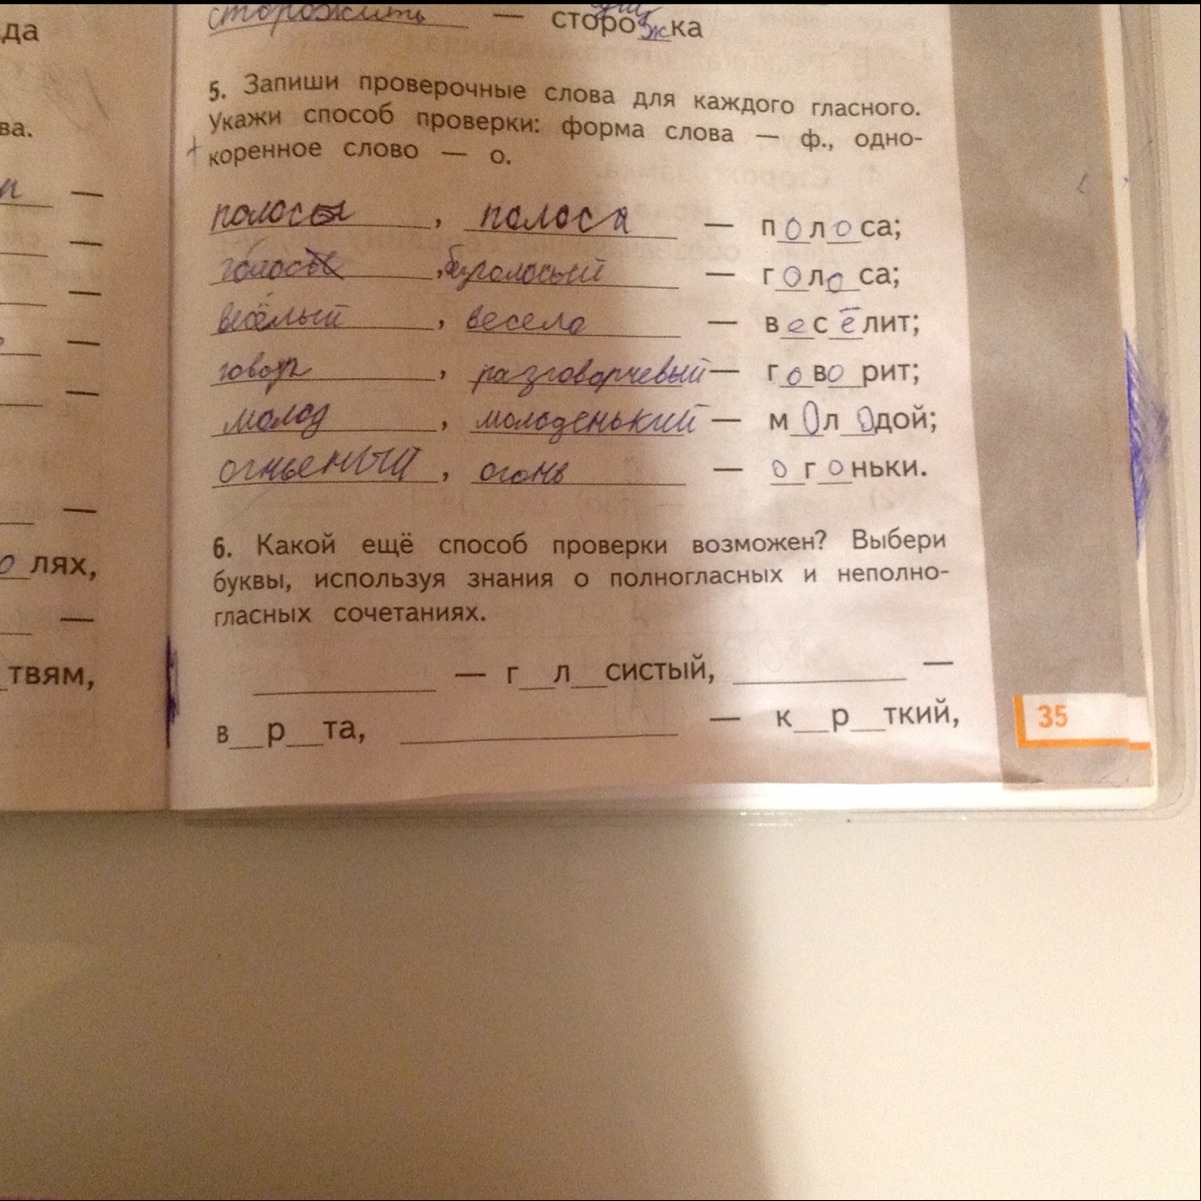 да
ва.
лях,
твям,
сторожить — сторожка
5. Запиши проверочные слова для каждого гласного.
Укажи способ проверки: форма слова — ф., одно-
коренное слово — о.
полосы, полоса — полоса;
голосы, безголосый — голоса;
весёлый, весело — весёлит;
говор, разговорчевый — говорит;
молод, молоденький — молодой;
огньеный, огонь — огоньки.
6. Какой ещё способ проверки возможен? Выбери
буквы, используя знания о полногласных и неполно-
гласных сочетаниях.
____ — г__л__систый, ____ —
в__р__та, ____ — к__р__ткий,
35